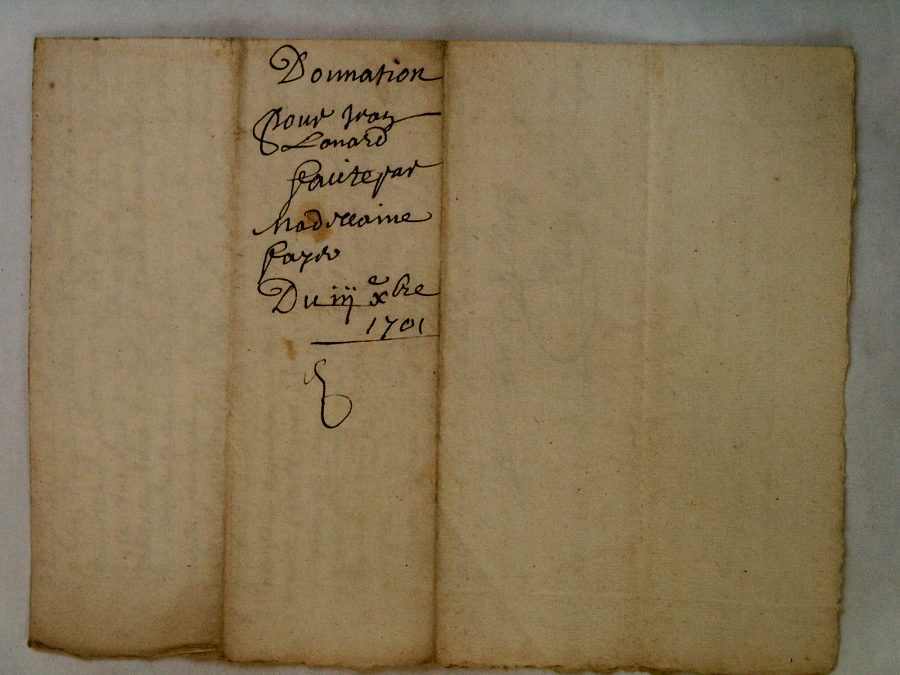 Donnation
pour Jean
Lonard
faite par
Madellaine
fayr
Du iij e xbre
1701